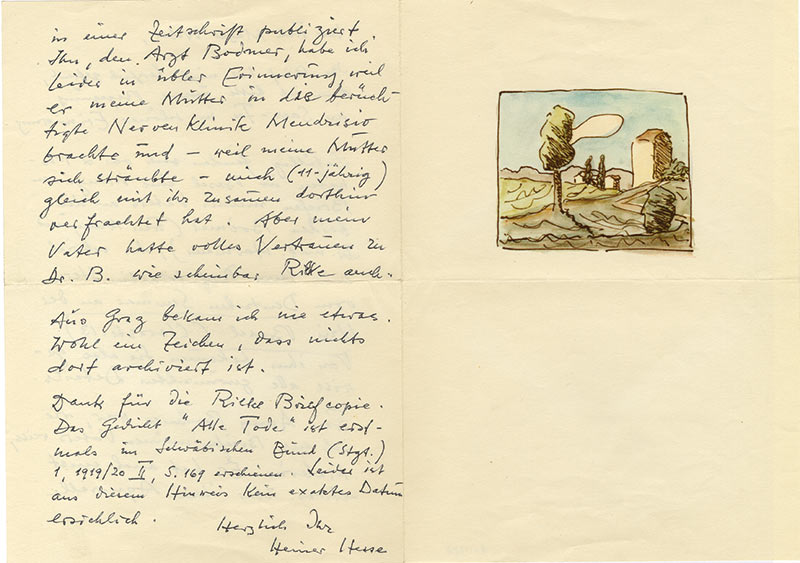 in einer Zeitschrift publiziert.
Ihn, den Arzt Bodmer, habe ich
leider in übler Erinnerung, weil
er meine Mutter in die berüch-
tigte Nervenklinik Mendrisio
brachte und – weil meine Mutter
sich sträubte – mich (11-jährig)
gleich mit ihr zusammen dorthin
verfrachtet hat. Aber mein
Vater hatte volles Vertrauen zu
Dr. B. wie scheinbar Rilke auch.
Aus Graz bekam ich nie etwas.
Wohl ein Zeichen, dass nichts
dort archiviert ist.
Dank für die Rilke Briefcopie.
Das Gedicht "Alle Tode" ist erst-
mals im Schwäbischen Bund (Stgt.)
1, 1919/20 II, S. 169 erschienen. Leider ist
aus diesem Hinweis kein exaktes Datum
ersichlich.
Herzlich Ihr
Heiner Hesse